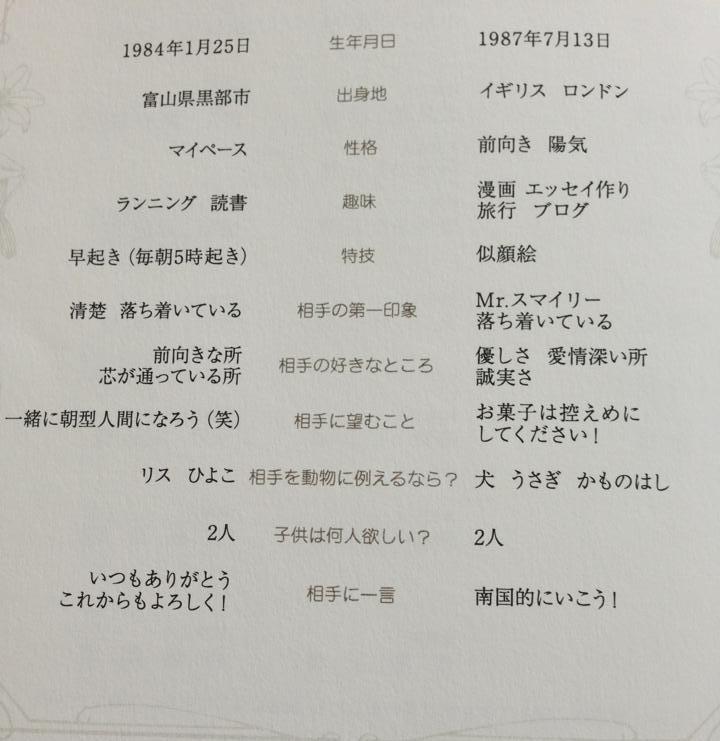 1984年1月25日 生年月日 1987年7月13日
富山県黒部市 出身地 イギリス ロンドン
マイペース 性格 前向き 陽気
ランニング 読書 趣味 漫画 エッセイ作り
旅行 ブログ
早起き(毎朝5時起き) 特技 似顔絵
清楚 落ち着いている 相手の第一印象 Mr.スマイリー
落ち着いている
前向きな所
芯が通っている所 相手の好きなところ 優しさ 愛情深い所
誠実さ
一緒に朝型人間になろう(笑) 相手に望むこと お菓子は控えめに
してください!
リス ひよこ 相手を動物に例えるなら? 犬 うさぎ かものはし
2人 子供は何人欲しい? 2人
いつもありがとう
これからもよろしく! 相手に一言 南国的にいこう!